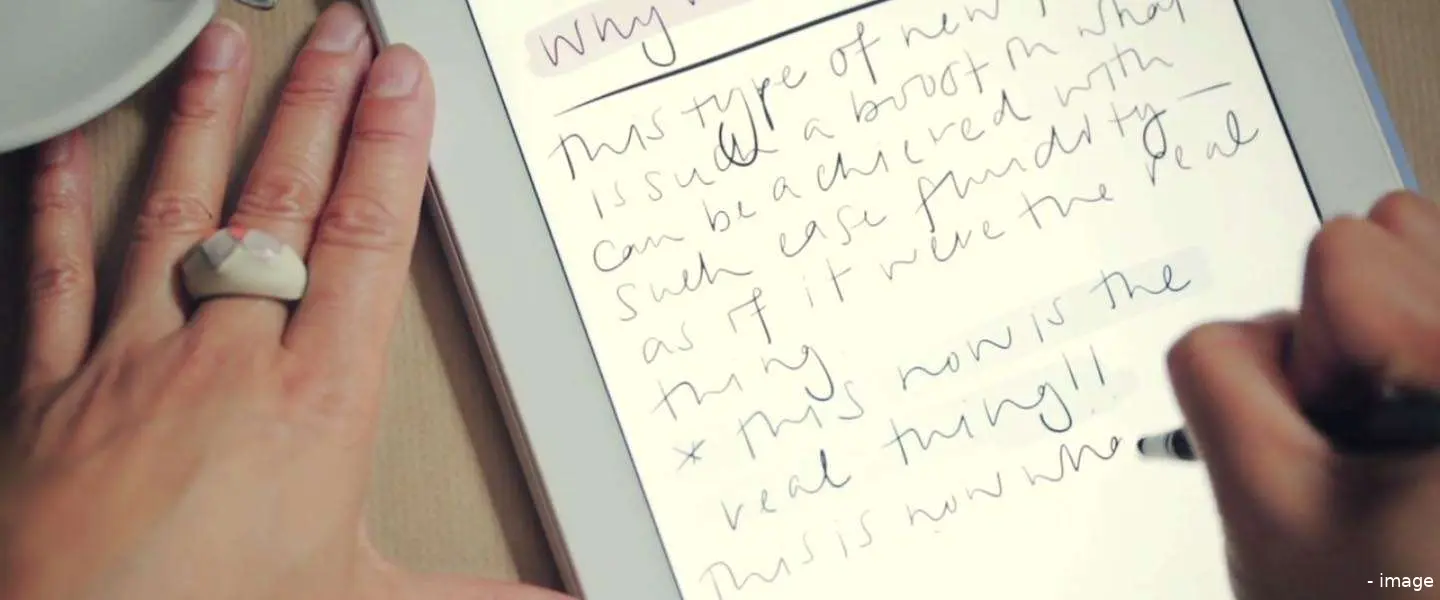 Why
this type of new
is such a boost in what
can be achieved with
such ease fluidity —
as if it were the real
thing
* this now is the
real thing!!
This is now wha
- image